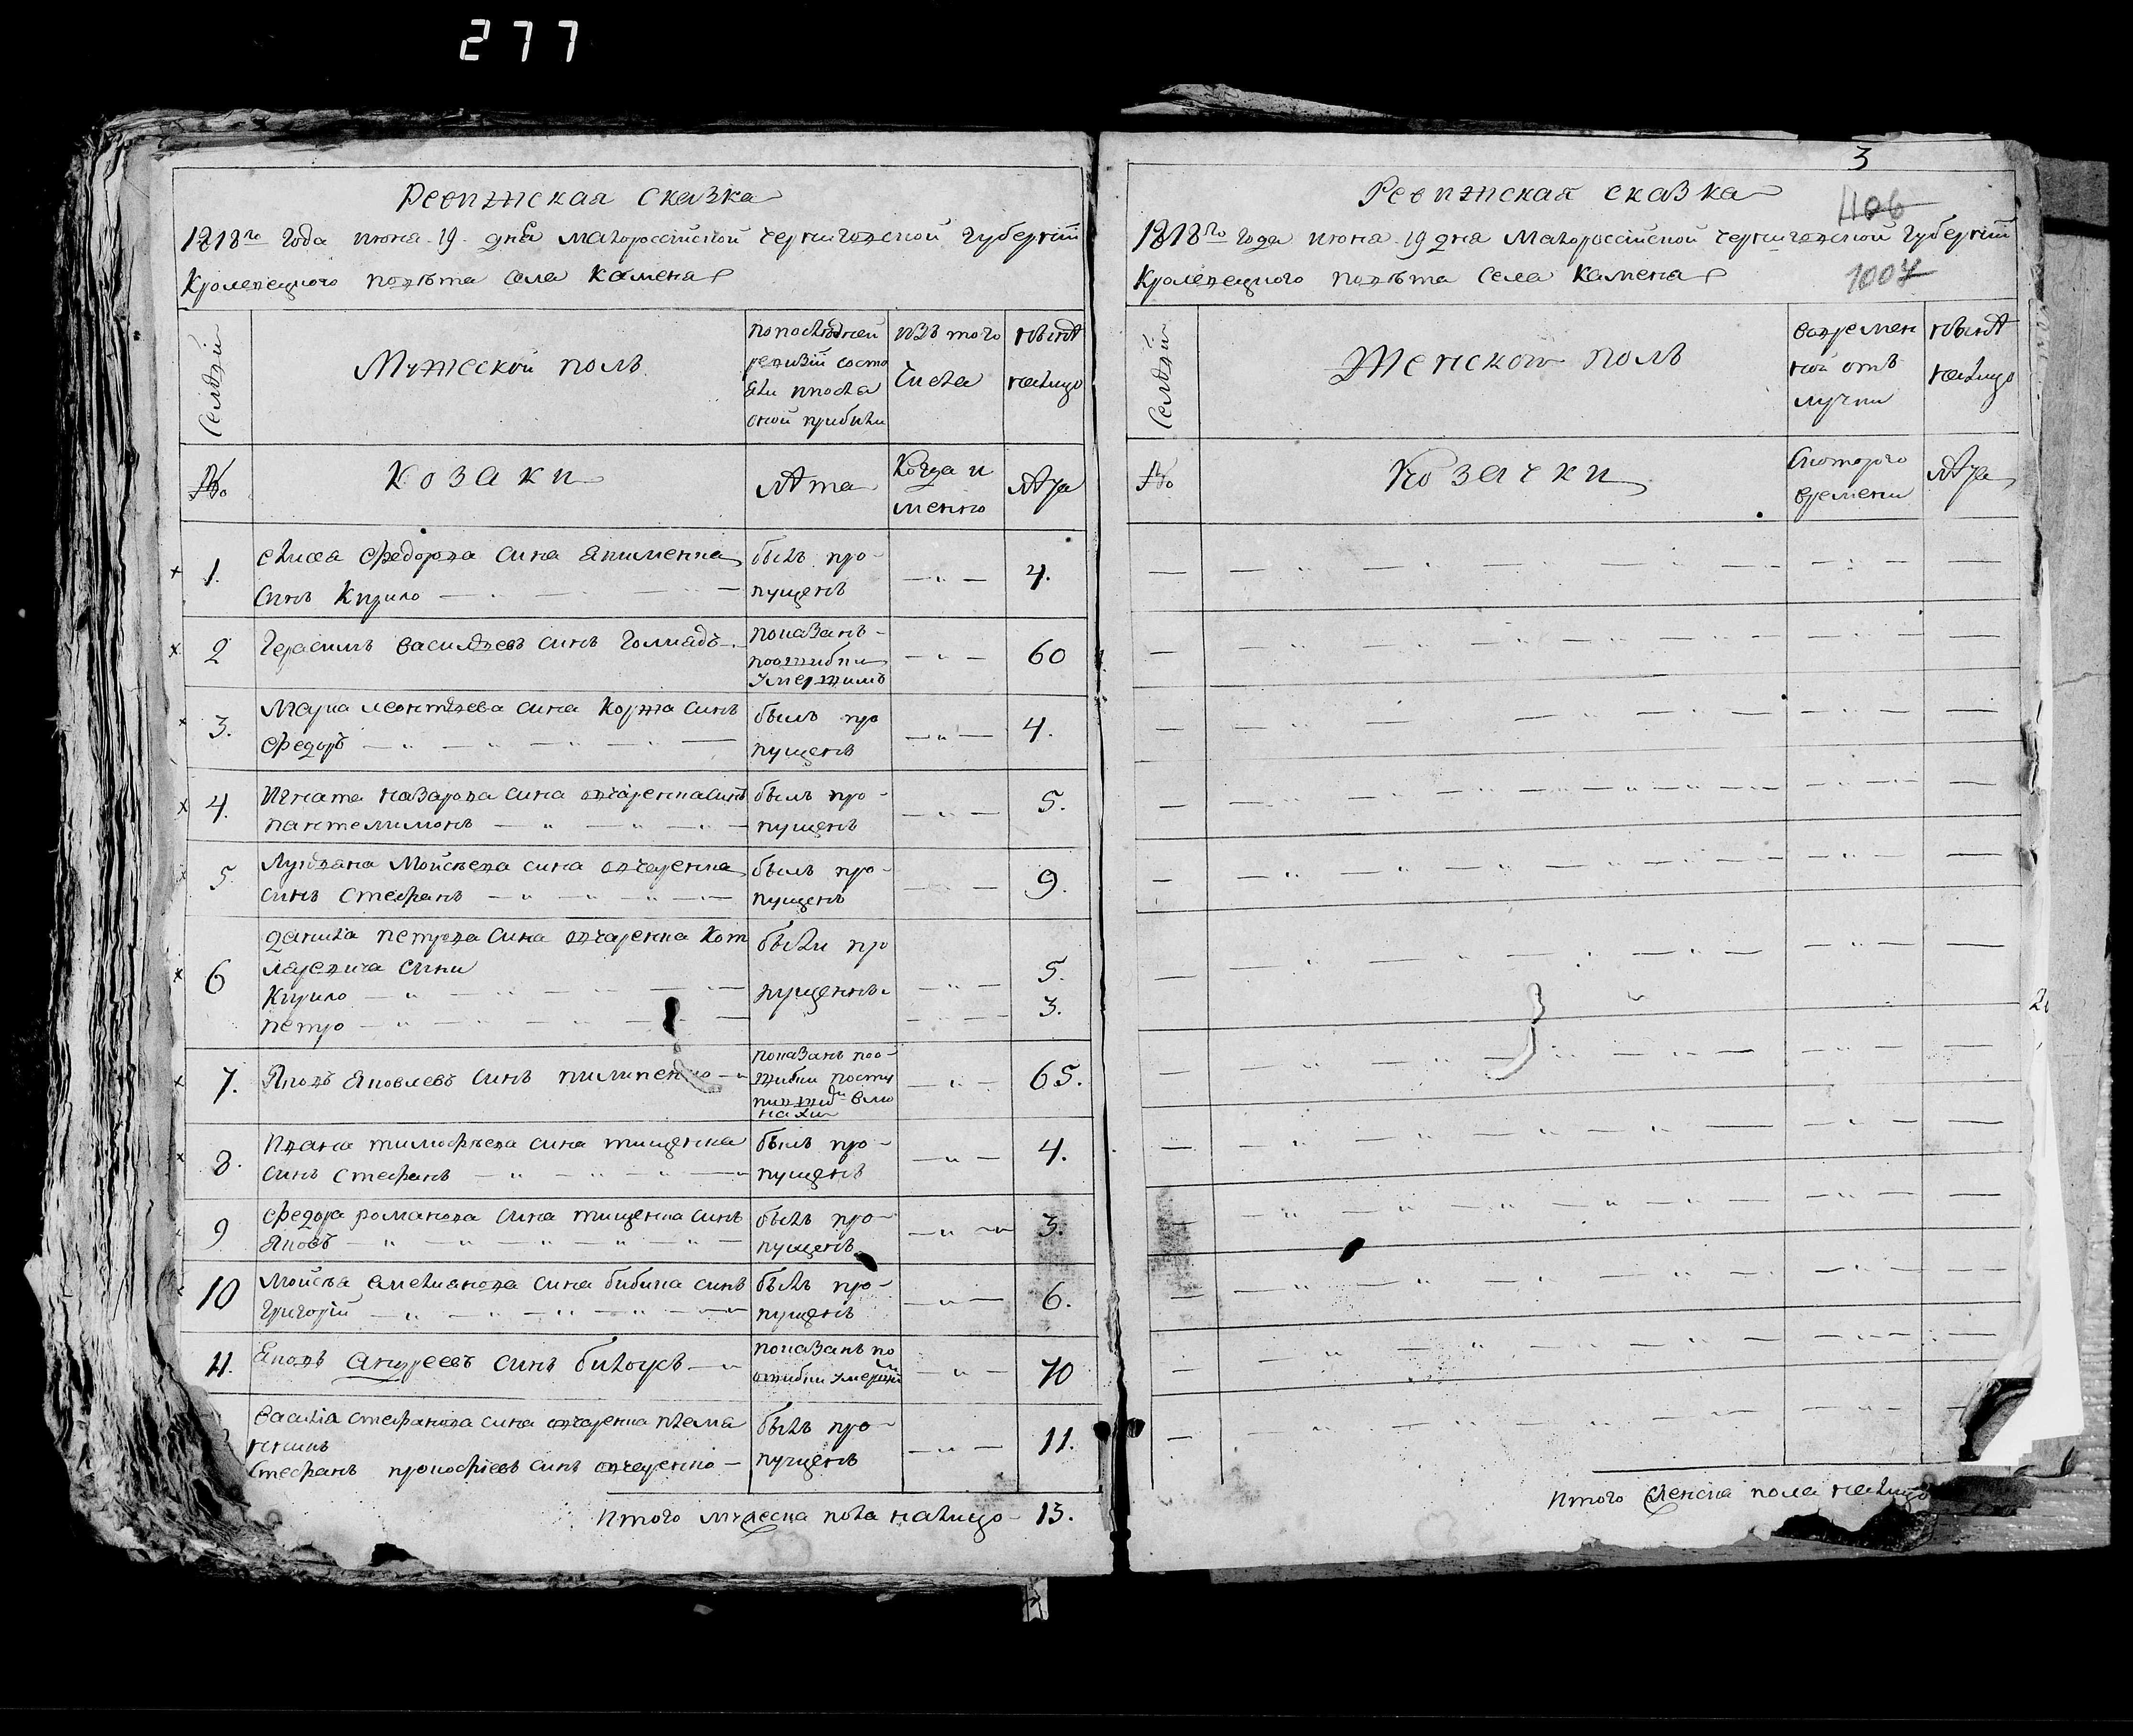 277
Ревижская сказка
1818го года июня 19 дня Малороссийской Черниговской Губернии
Кролевецкого повѣта села Каменя
Семѣй
Мужеской полъ
попослѣдней ревизій состо яли ипосля оной прибыли
изъ того числа
нынѣ налицо
№
Козаки
лѣта
Когда и менно
лѣта
1.
сина Якименка
синъ Кирило
былъ про-
пущенъ
4.
2
Герасимъ Василѣевъ синъ
показанъ
поошибки
умершимъ
60
3.
Марка Леонтѣева сина Коржа синъ
Федоръ
былъ про
пущенъ
4.
4.
Игната Назарова сина овчаренка синъ
Пантелимонъ
былъ про-
пущенъ
5.
5
Лукѣяна Мойсѣева сина овчаренка
синъ Стефанъ
былъ про-
пущенъ
9.
6
Данила Петрова сина овчаренка Кот
ляревича сини
Кирило
Петро
были про
пущенны
5.
3.
7.
Яковъ Яковлевъ синъ пилипенко
показанъ поо-
шибки
65.
8.
Ивана Тимофѣева сина тищенка
синъ Стефанъ
былъ про-
пущенъ
4.
9
Федора Романова сина тищенка синъ
Яковъ
былъ про-
пущенъ
3.
10
Мойсѣа Емелианова сина бибика синъ
Григорій
былъ про-
пущенъ
6.
11.
Яковъ Андреевъ синъ билоусъ
показанъ по
ошибки умершим
70
Василіа Стефанова сина овчаренка племя
нникъ
Стефанъ Прокофіевъ синъ овчаренко
былъ про-
пущенъ
11.
Итого мужеска пола налицо 13.
3
1106
1007
Ревижская сказка
1818го года июня 19 дня Малороссийской Черниговской Губернии
Кролевецкого повѣта села Каменя
Семѣй
Женской полъ
вовремен
ной отъ
лучки
нынѣ
налицо
№
Козачки
Скоторого
времени
лѣта
Итого женска пола налицо